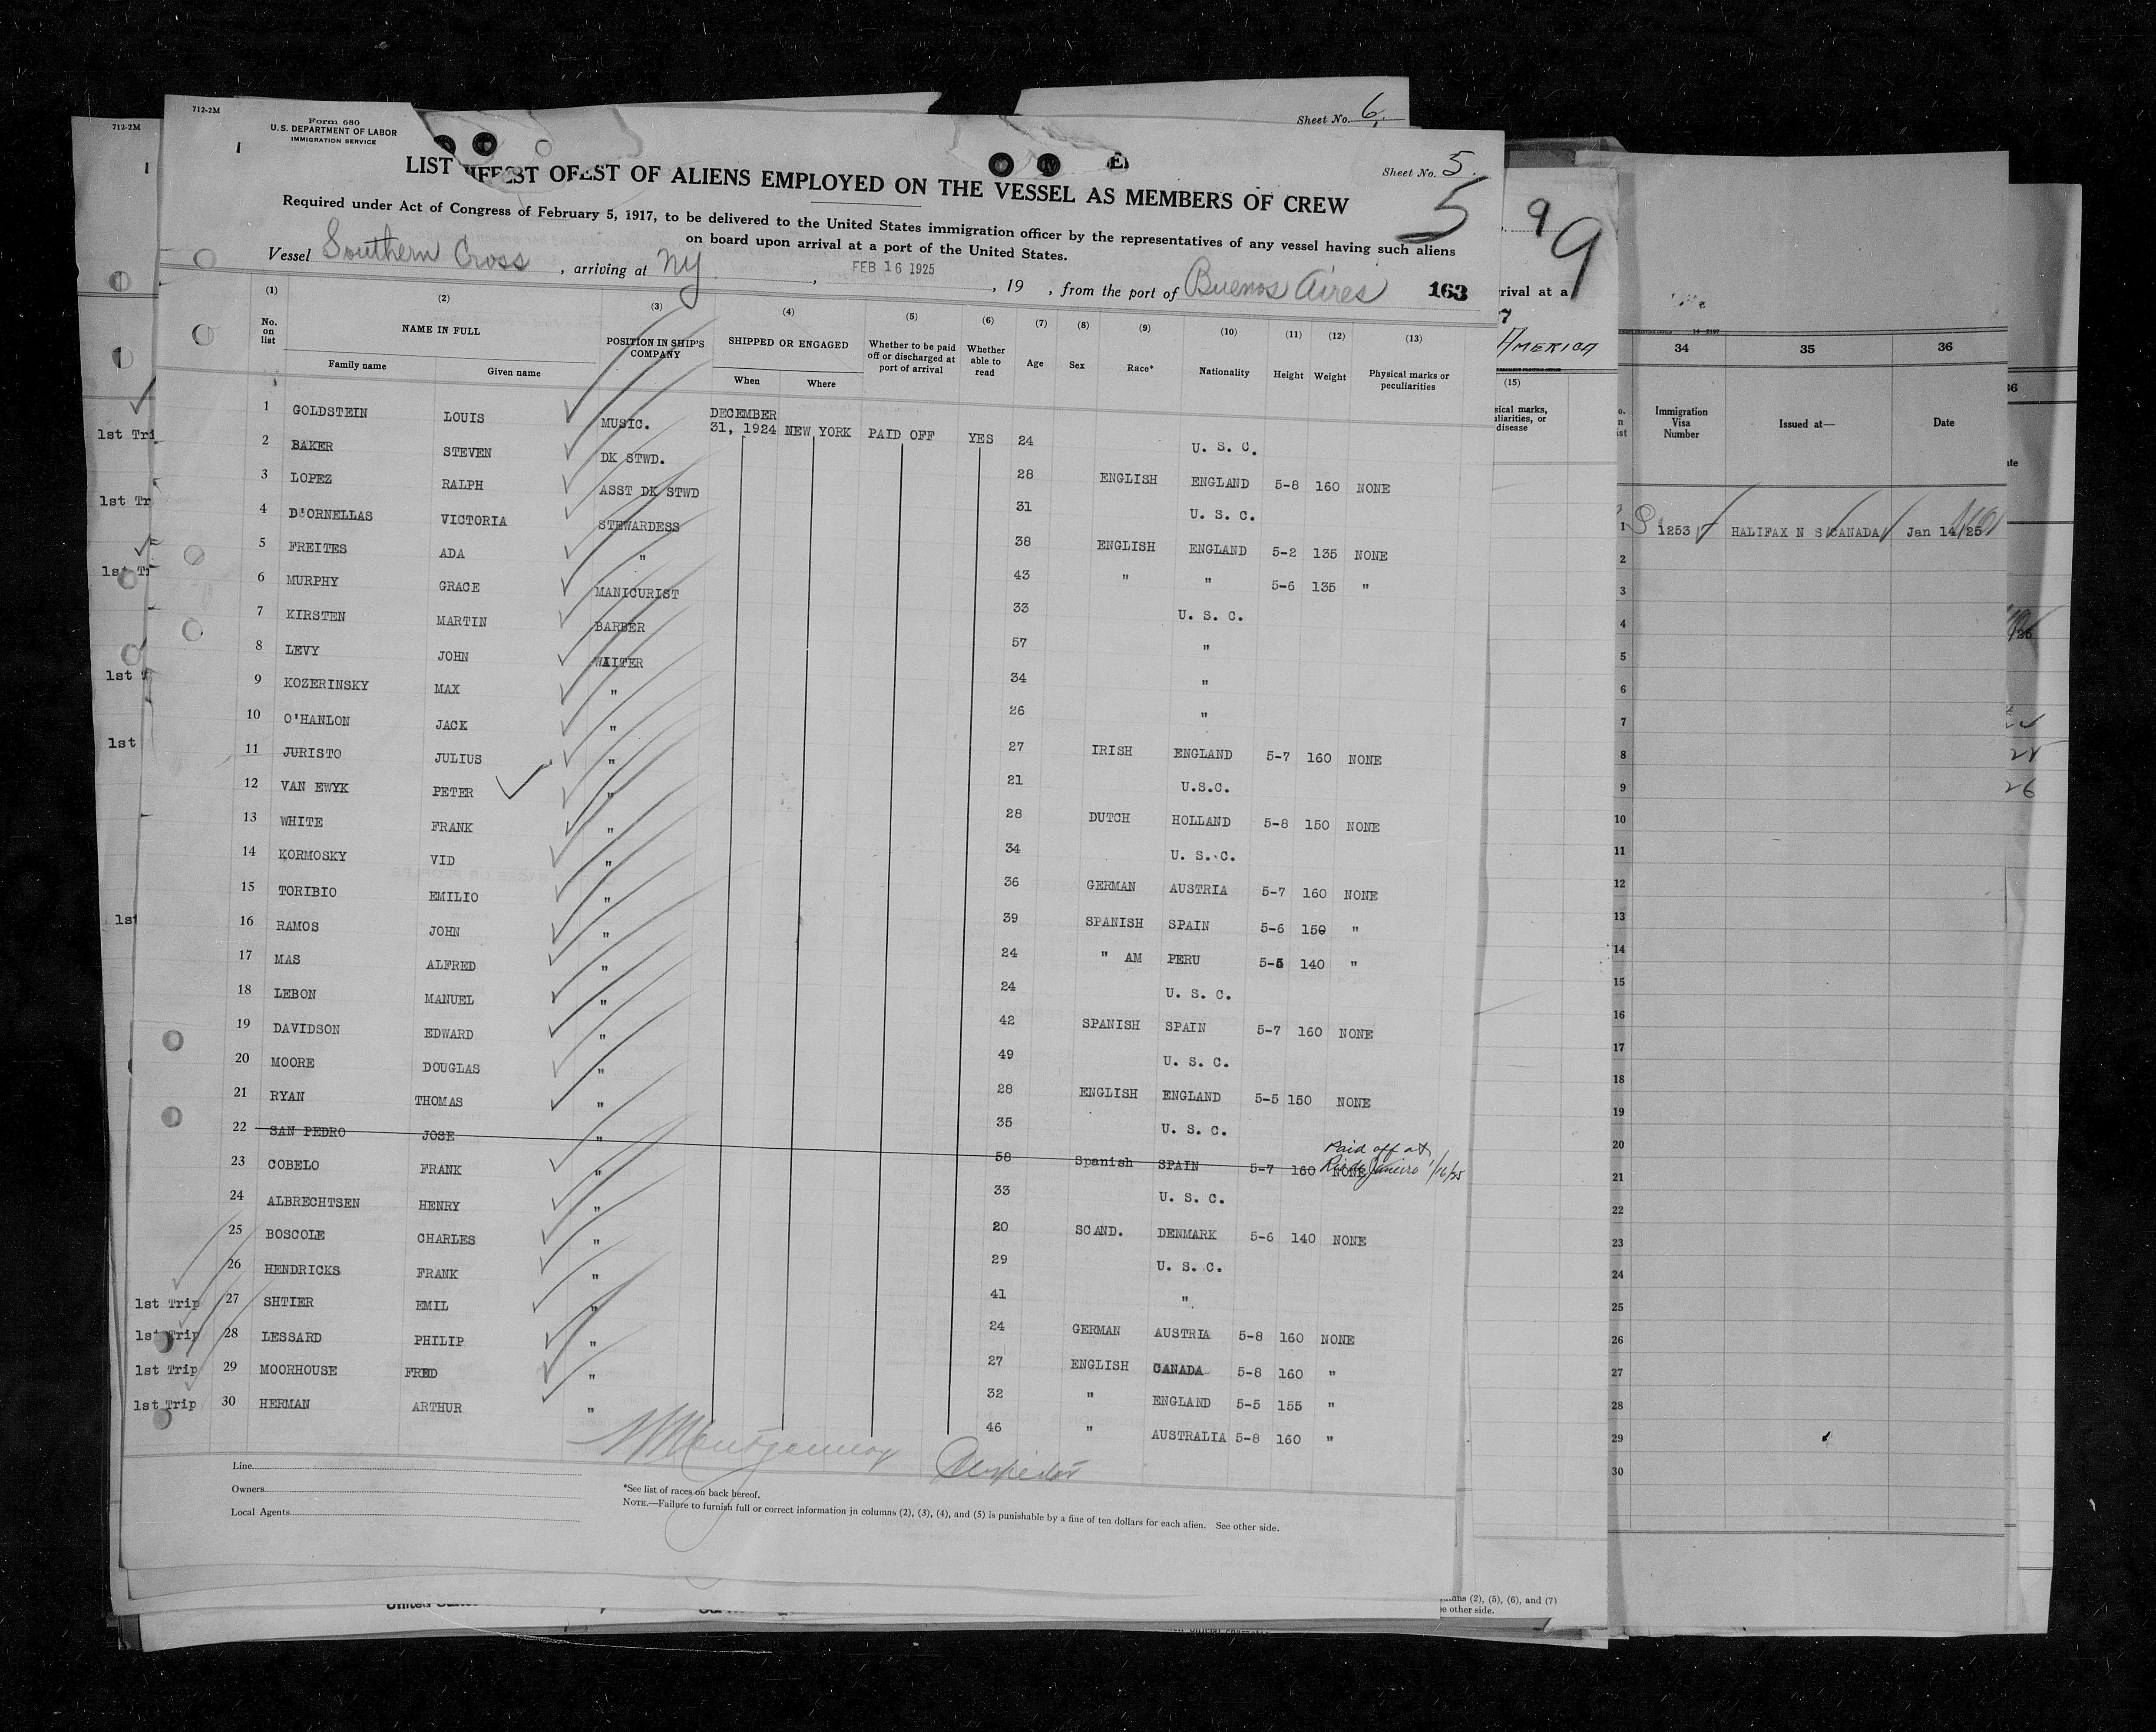 712-2M
712-2M
Form 680
U.S. DEPARTMENT OF LABOR
IMMIGRATION SERVICE
Sheet No. 6
Sheet No. 5.
5
LIST OF ALIENS EMPLOYED ON THE VESSEL AS MEMBERS OF CREW
Required under Act of Congress of February 5, 1917, to be delivered to the United States immigration officer by the representatives of any vessel having such aliens
on board upon arrival at a port of the United States.
Vessel Southern Cross, arriving at NY, FEB 16 1925, 19 , from the port of Buenos Aires 163
(1) (2) (3) (4) (5) (6) (7) (8) (9) (10) (11) (12) (13)
No. on list NAME IN FULL POSITION IN SHIP'S COMPANY SHIPPED OR ENGAGED Whether to be paid off or discharged at port of arrival Whether able to read Age Sex Race* Nationality Height Weight Physical marks or peculiarities
Family name Given name When Where
1 GOLDSTEIN LOUIS MUSIC. DECEMBER 31, 1924 NEW YORK PAID OFF YES 24 U. S. C.
2 BAKER STEVEN DK STWD. 28 ENGLISH ENGLAND 5-8 160 NONE
3 LOPEZ RALPH ASST DK STWD 31 U. S. C.
4 D'ORNELLAS VICTORIA STEWARDESS 38 ENGLISH ENGLAND 5-2 135 NONE
5 FREITES ADA " 43 " " 5-6 135 "
6 MURPHY GRACE MANICURIST 33 U. S. C.
7 KIRSTEN MARTIN BARBER 57 "
8 LEVY JOHN WAITER 34 "
9 KOZERINSKY MAX " 26 "
10 O'HANLON JACK " 27 IRISH ENGLAND 5-7 160 NONE
11 JURISTO JULIUS " 21 U.S.C.
12 VAN EWYK PETER " 28 DUTCH HOLLAND 5-8 150 NONE
13 WHITE FRANK " 34 U. S. C.
14 KORMOSKY VID " 36 GERMAN AUSTRIA 5-7 160 NONE
15 TORIBIO EMILIO " 39 SPANISH SPAIN 5-6 150 "
16 RAMOS JOHN " 24 " AM PERU 5-5 140 "
17 MAS ALFRED " 24 U. S. C.
18 LEBON MANUEL " 42 SPANISH SPAIN 5-7 160 NONE
19 DAVIDSON EDWARD " 49 U. S. C.
20 MOORE DOUGLAS " 28 ENGLISH ENGLAND 5-5 150 NONE
21 RYAN THOMAS " 35 U. S. C.
22 SAN PEDRO JOSE " 58 Spanish SPAIN 5-7 160 NONE Paid off at Rio de Janeiro 1/16/25
23 COBELO FRANK " 33 U. S. C.
24 ALBRECHTSEN HENRY " 20 SCAND. DENMARK 5-6 140 NONE
25 BOSCOLE CHARLES " 29 U. S. C.
26 HENDRICKS FRANK " 41 "
1st Trip 27 SHTIER EMIL " 24 GERMAN AUSTRIA 5-8 160 NONE
1st Trip 28 LESSARD PHILIP " 27 ENGLISH CANADA 5-8 160 "
1st Trip 29 MOORHOUSE FRED " 32 " ENGLAND 5-5 155 "
1st Trip 30 HERMAN ARTHUR " 46 " AUSTRALIA 5-8 160 "
Line
Owners
Local Agents
*See list of races on back hereof.
NOTE.—Failure to furnish full or correct information in columns (2), (3), (4), and (5) is punishable by a fine of ten dollars for each alien. See other side.
1st Tri
1st Tr
1st Tr
1st
1st
1st
9
9
rival at a
7
AMERICA
(15)
sical marks,
liarities, or
disease
34 35 36
Immigration Visa Number Issued at— Date
1 1253 HALIFAX N S CANADA Jan 14/25
2
3
4
5
6
7
8
9
10
11
12
13
14
15
16
17
18
19
20
21
22
23
24
25
26
27
28
29
30
mns (2), (5), (6), and (7)
e other side.